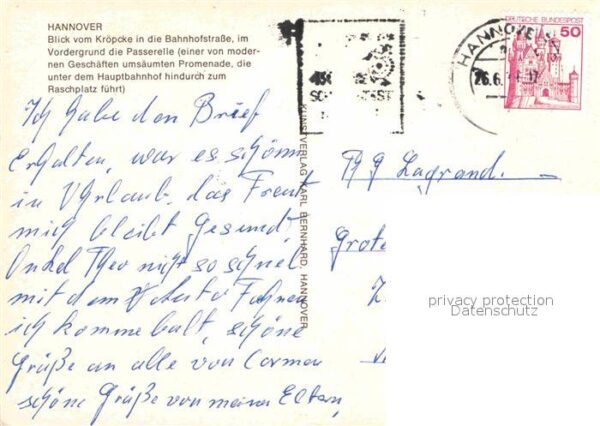 HANNOVER
Blick vom Kröpcke in die Bahnhofstraße, im
Vordergrund die Passerelle (einer von moder-
nen Geschäften umsäumten Promenade, die
unter dem Hauptbahnhof hindurch zum
Raschplatz führt)
Ich habe den Brief
Erhalten, war es schönn
in Uhrlaub, das Freut
mich bleibt Gesund.
Onkel Theo nicht so schnel
mit dem Fahren
ich komme balt, schöne
Grüße an alle von Carmen
schöne Grüße von meinen Eltern,
KUNSTVERLAG KARL BERNHARD, HANNOVER
HANNOVER
26.6.
DEUTSCHE BUNDESPOST
50
Lagrand.
Grote
privacy protection
Datenschutz